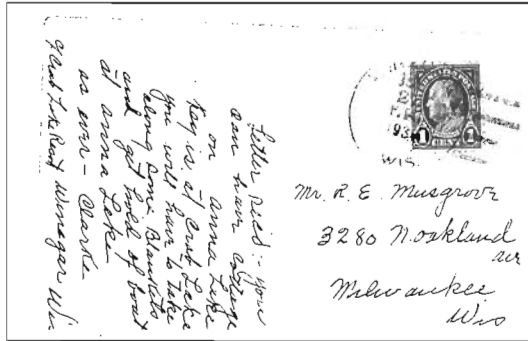 Letter rec'd - you
can have cottage
on Anna Lake
Key is at Crab Lake
you will have to take
along some Blankets
and get hold of boat
at Anna Lake
as ever - Clarke
% Crab Lake Resort Winegar Wis
WIS.
1
Mr. R. E. Musgrove
3280 N. Oakland
ave
Milwaukee
Wis